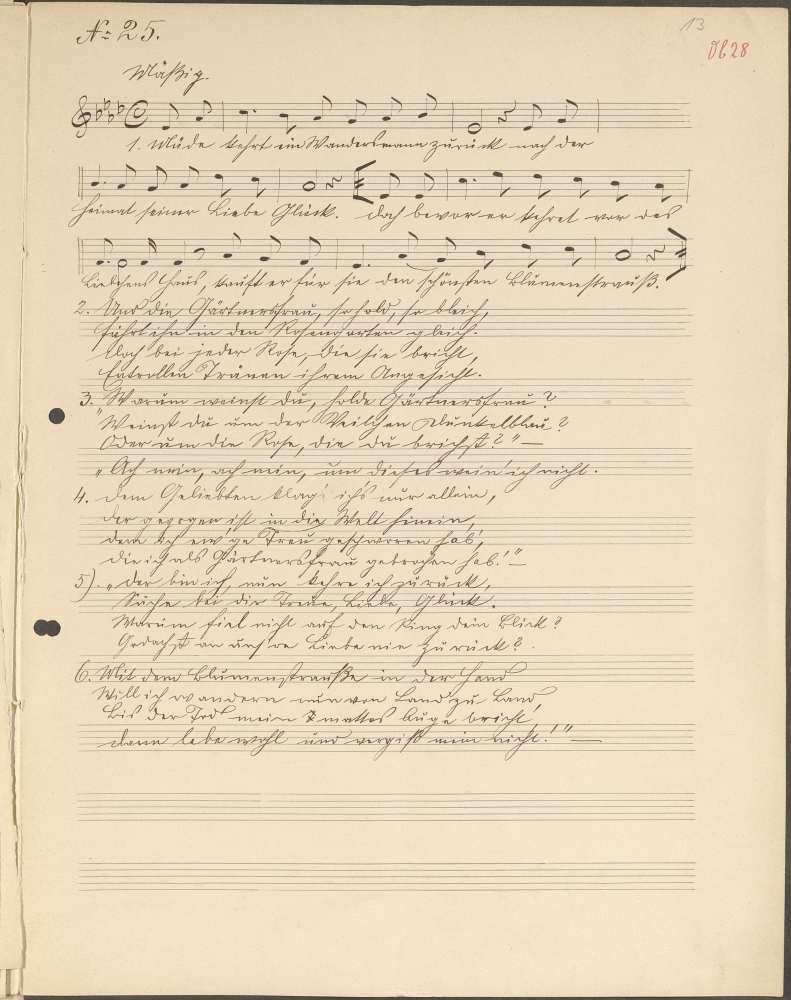 No 25.
13
Ob 28
Mäßig.
1. Müde kehrt ein Wandersmann zurück nach der
Heimat seiner Liebe Glück. Doch bevor er kehret vor des
Liebchens Haus, kauft er für sie den schönsten Blumenstrauß.
2. Und die Gärtnersfrau, so hold, so bleich,
führt ihn in den Rosengarten gleich.
Doch bei jeder Rose, die sie bricht,
Entrollen Tränen ihrem Angesicht.
3. „Warum weinst du, holde Gärtnersfrau?
Weinst du um der Veilchen Dunkelblau?
Oder um die Rose, die du brichst?" —
„Ach nein, ach nein, um dieses wein' ich nicht.
4. Dem Geliebten klag' ichs nur allein,
der gezogen ist in die Welt hinein,
dem ich ew'ge Treu geschworen hab',
die ich als Gärtnersfrau gebrochen hab.'" —
5). „Der bin ich, nun kehre ich zurück,
Suche bei dir Treue, Liebe, Glück.
Warum fiel nicht auf den Ring dein Blick?
Gedachst an unsre Liebe nie zurück?
6. Mit dem Blumenstrauße in der Hand
Will ich wandern nun von Land zu Land,
Bis der Tod mein mattes Auge bricht,
dann lebe wohl und vergiß mein nicht!" —